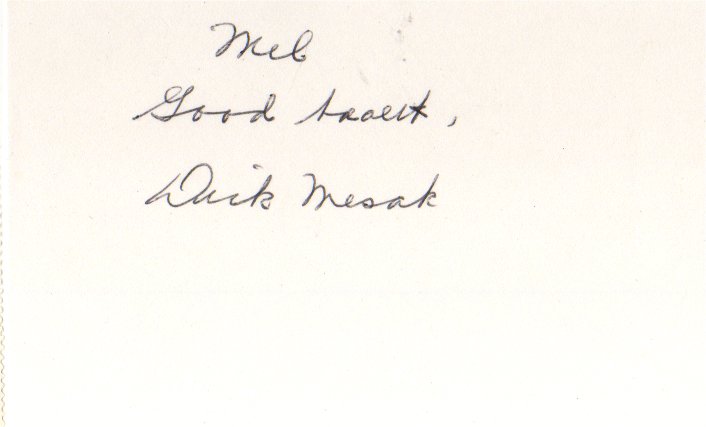 Mel
Good
Dick Mesak